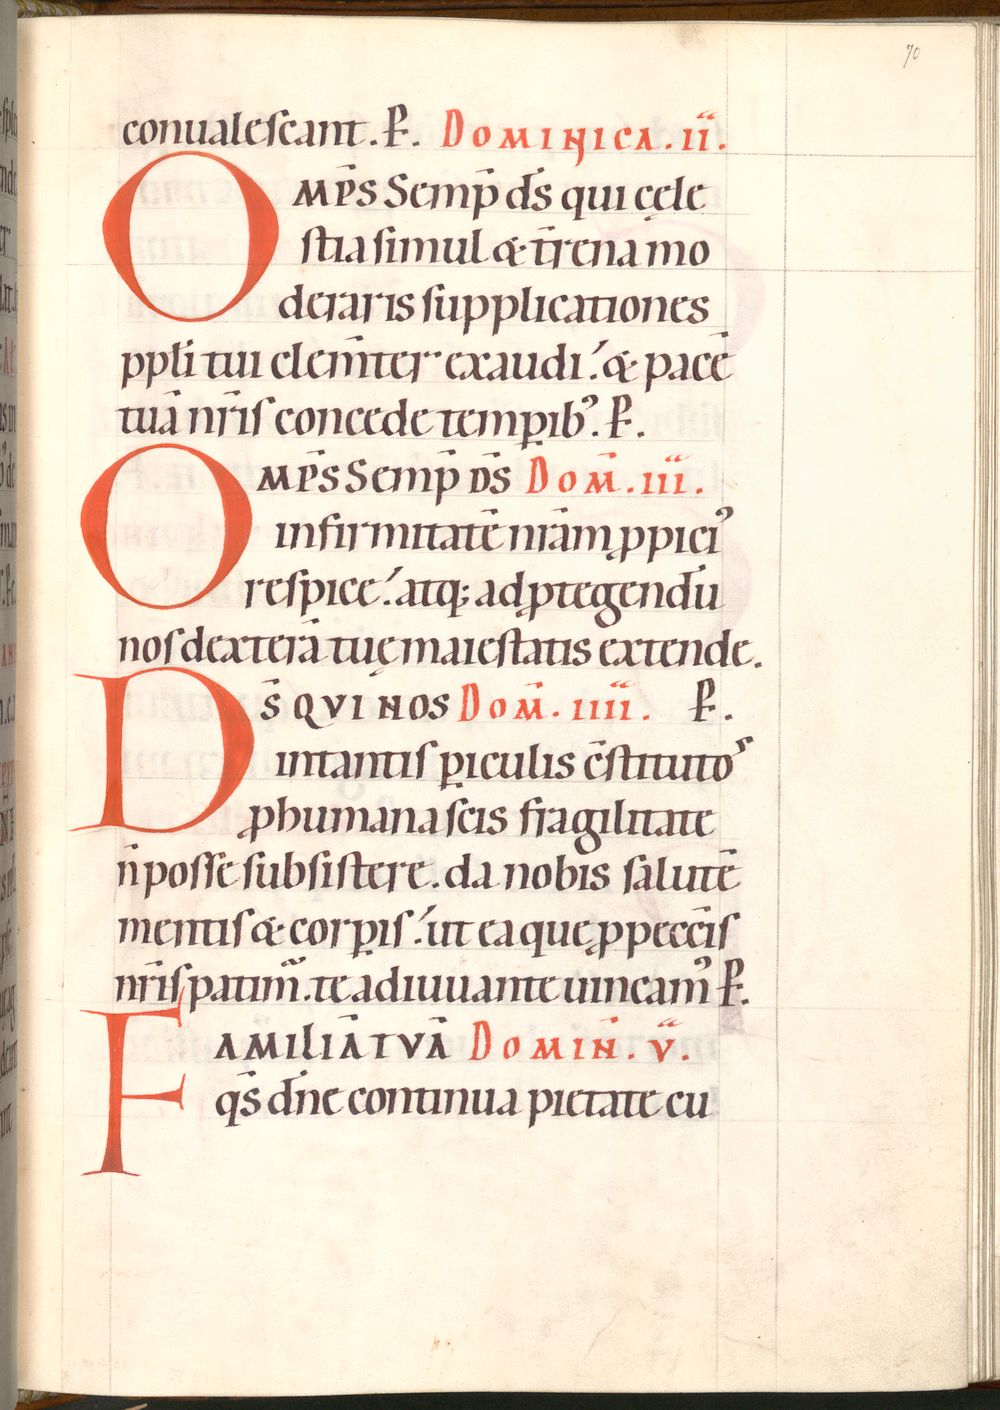 70
conualeſcant. P̶. DOMINICA. II.
OMP̄S Semp̄ ds̄ qui cęle
ſtia ſimul & tr̄ena mo
deraris ſupplicationes
ppl̄i tui clem̄ter exaudi. & pacē
tuā nr̄iſ concede temꝑib᾿. P̶.
OMP̄S Semp̄ DS̄ DOM̄. III.
infirmitatē nr̄am ꝓpici᾿
reſpice. atq; ad ꝓtegendū
noſ dexterā tuę maieſtatis extende.
DS̄ QVI NOS DOM̄. IIII. P̶.
in tantiſ ꝑiculis c̄ſtitutoſ
ꝓ humana ſcis fragilitate
n̄ poſſe subſiſtere. da nobis ſalutē
mentiſ & corꝑiſ. ut ea que ꝓ peccīſ
nr̄iſ patim̄. te adiuuante uincam᾿ P̶.
FAMILIĀ TVĀ DOMIN̄. V.
qs̄ dn̄e continua pietate cu